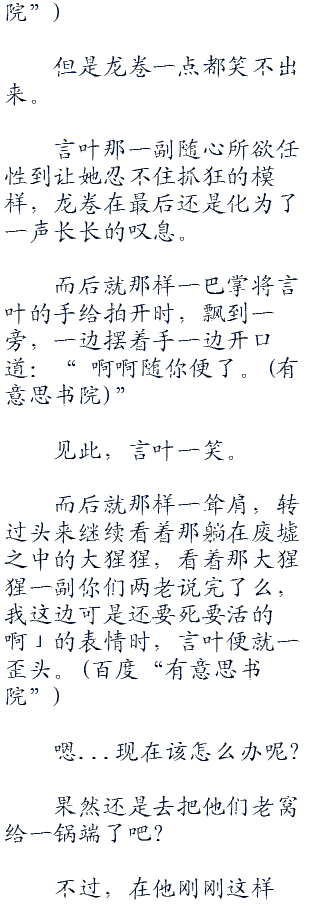 院”)
但是龙卷一点都笑不出
来。
言叶那一副随心所欲任
性到让她忍不住抓狂的模
样，龙卷在最后还是化为了
一声长长的叹息。
而后就那样一巴掌将言
叶的手给拍开时，飘到一
旁，一边摆着手一边开口
道：“ 啊啊随你便了。(有
意思书院)”
见此，言叶一笑。
而后就那样一耸肩，转
过头来继续看着那躺在废墟
之中的大猩猩，看着那大猩
猩一副你们两老说完了么，
我这边可是还要死要活的
啊」的表情时，言叶便就一
歪头。(百度“有意思书
院”)
嗯...现在该怎么办呢？
果然还是去把他们老窝
给一锅端了吧？
不过，在他刚刚这样